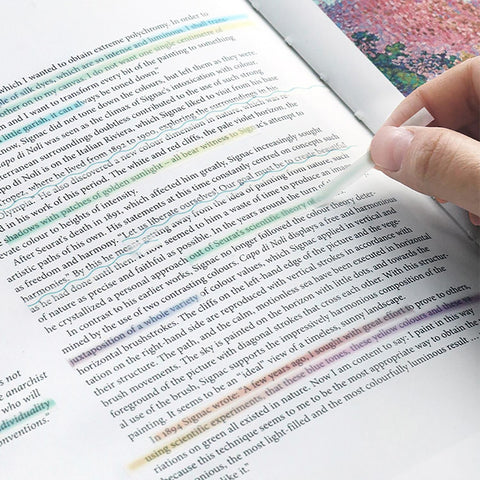 which I wanted to obtain extreme polychromy. In order to
ple of silk dyes, which are so intense and luminous, I shall trans-
other on to my canvas. I do not want one single centimetre of
and I want to transform every bit of the painting to something
the garish, it can always be toned down."
Signac did not tone down the colours, but left them as they were.
Capo di Noli was seen as the climax of Signac's intoxication with colour.
terranean surroundings doubtless contributed to the use of such strong
po di Noli is on the Italian Riviera, which Signac liked to visit from his base
Tropez, where he lived from 1892 to 1909, exploring the surroundings in his
Olympia. He also discovered a new colour dimension in nature which was to
in his work of this period. The white and red cliffs, the pale violet horizon, the
shadows with patches of golden sunlight – all bear witness to Signac's attempt to
evate colour to heights of intensity.
After Seurat's death in 1891, which affected him greatly, Signac increasingly sought
artistic paths of his own. His statements at this time constantly centred on concepts such
as freedom and harmony: "Let us liberate ourselves! Our goal must be to create beautiful
harmonies." By this he
as he had done until then
of nature as precise and faithful as possible. In the years around the
he crystallized a personal approach out of Seurat's scientific theory
In contrast to his earlier works, Signac no longer followed the colour theory
mined by the use of two contrasting colours. Capo di Noli displays a free and harmonious
juxtaposition of a whole variety of colour values, which Signac applied in vertical and
horizontal brushstrokes. The cliffs on the left-hand edge of the picture and the vege-
tation on the right hand side are reproduced with vertical strokes in accordance with
their structure. The path, and the calm, motionless sea have been executed in horizontal
brush movements. The sky is painted on the horizon with little dots, and towards the
foreground of the picture with diagonal strokes that cross each other. With this structur-
al use of the brush, Signac supports the impressively harmonious composition of the
painting. It seems to be an "ideal" view of a timeless, sunny landscape.
In 1894 Signac wrote: "A few years ago I sought with great effort to prove to others,
using scientific experiments, that these blue tones, these yellow colours and
riations on green all existed in nature. Now I am content to say: I paint in this way
because this technique seems to me to be the most appropriate way to obtain the
onious, the most light-filled and the most colourfully luminous result ...
like it."
is not
e anarchist
who will
dividuality
onventions."